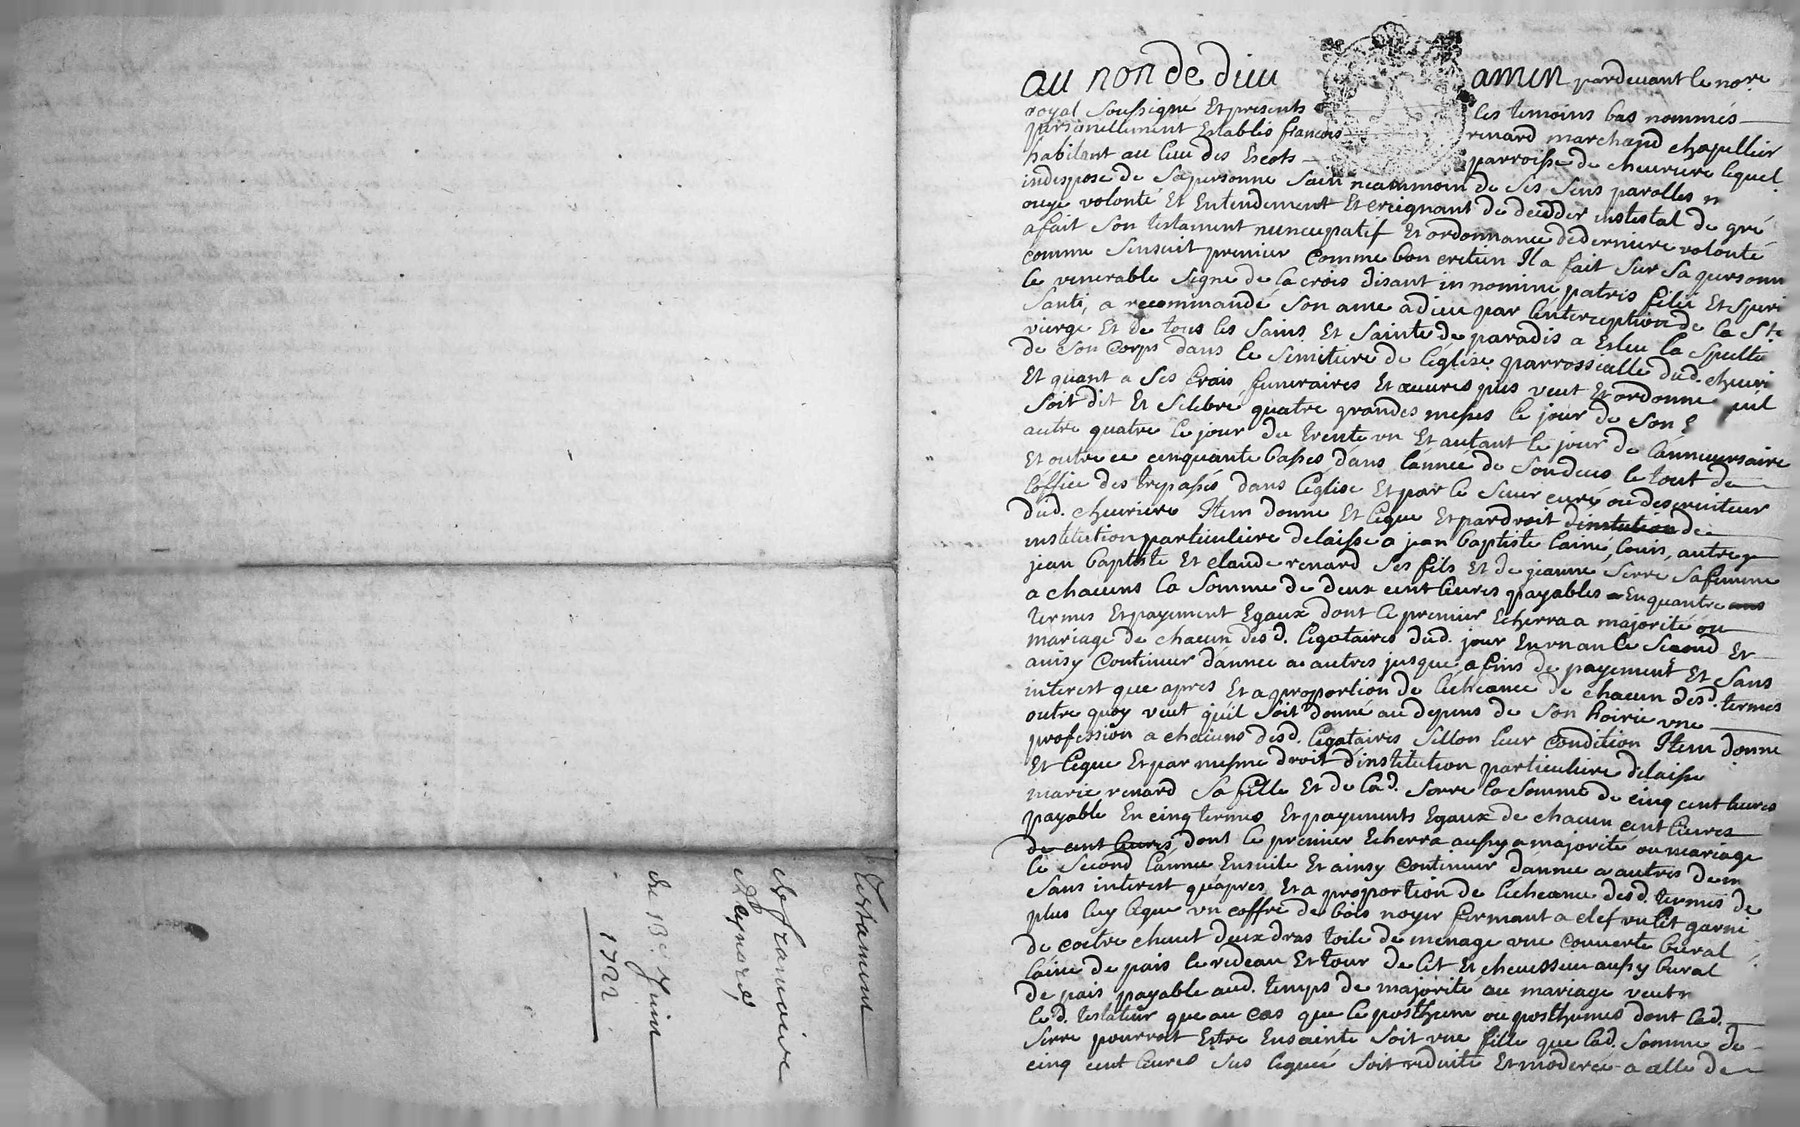 Testament
de francoise
Reynard
du 13e Juin
1722
au non de dieu amen pardevant le nore
royal soussigne Et presents les temoins bas nommés
personellement Establis francois renard marchand chapellier
habitant au lieu des Escots parroisse de cheuriere lequel
indispose de sa personne sain neammoin de ses sens parolles
ouye volonté Et Entendement Et creignant de dedder intestat de gré
a fait son testament nuncupatif Et ordonnance de derniere volonté
comme sensuit premier comme bon cretien Il a fait sur sa personne
le venerable signe de la crois disant in nomine patris filii Et speri
santi, a recommande son ame a dieu par linterception de la Ste
vierge Et de tous les sains Et sainte de paradis a Esleu la spulte
de son corps dans le simitiere de léglise parrossialle dud. cheuri
Et quant a ses frais funeraires Et œuures pies veut Et ordonne quil
soit dit Et selebre quatre grandes messes le jour de son
autre quatre le jour du trente un Et autant le jour de lanneuersaire
Et outre ce cinquante basses dans lannée de son deces le tout de
loffice des trepassés dans léglise Et par le sieur curé ou desseruiteur
dud. cheuriere Item donne Et legue Et par droit dinstution de
institution particuliere delaisse a jean baptiste lainé, louis, autre
jean baptiste Et claude renard ses fils Et de jeanne serre sa femme
a chacuns la somme de deux cent liures payables En quantre ans
termes Et payement Egaux dont le premier Echerra a majorité ou
mariage de chacun desd. legataires dud. jour En un an le second Et
ainsy continuer dannée a autres jusque a fins de payement Et sans
interest que apres Et a proportion de lécheance de chacun desd. termes
outre quoy veut quil soit donné au depens de son hoirie une
profession a chacuns desd. legataires sellon leur condition Item donne
Et legue Et par mesme droit dinstitution particuliere delaisse
marie renard sa fille Et de lad. serre la somme de cinq cent liures
payable En cinq termes Et payements Egaux de chacun cent liures
de cent liures, dont le premier Echerra aussy a majorité ou mariage
le second lannée Ensuite Et ainsy continuer dannée a autres de
sans interest quapres Et a proportion de lécheance desd. termes de
plus luy legue un coffre de bois noyer fermant a clef un lit garni
de coetre cheuet deux dras toile de menage une couuerte bural
laine de pais le rideau Et tour de lit Et cheuesseu aussy bural
de pais payable aud. temps de majorité au mariage veut
led. testateur que au cas que le posthume ou posthumes dont lad.
serre pourroit Estre Ensainte soit une fille que lad. somme de
cinq cent liures sus leguée soit reduite Et moderée a celle de